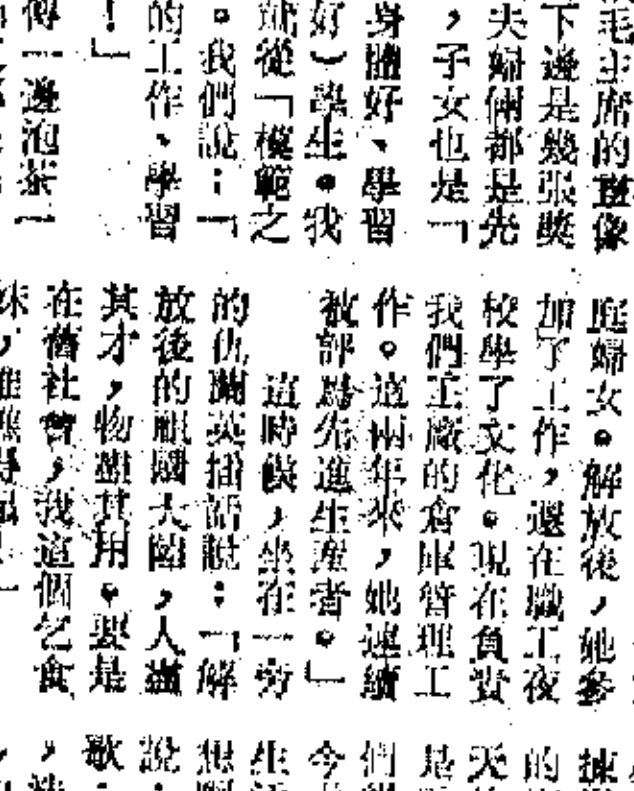 毛主席的畫像
下邊是幾張獎
夫婦倆都是先
，子女也是「
身體好、學習
好）學生。我
就從「模範之
。我們說：「
的工作、學習
！」
傅一邊泡茶一
庭婦女。解放後，她參
加了工作，還在職工夜
校學了文化。現在負責
我們工廠的倉庫管理工
作。這兩年來，她連續
被評爲先進生產者。」
這時候，坐在一旁
的仇蘭英插話說：「解
放後的祖國大陸，人盡
其才，物盡其用。要是
在舊社會，我這個乞食
妹，誰瞧得起
揀
的
天
是
們
今
生
想
說
歌
，